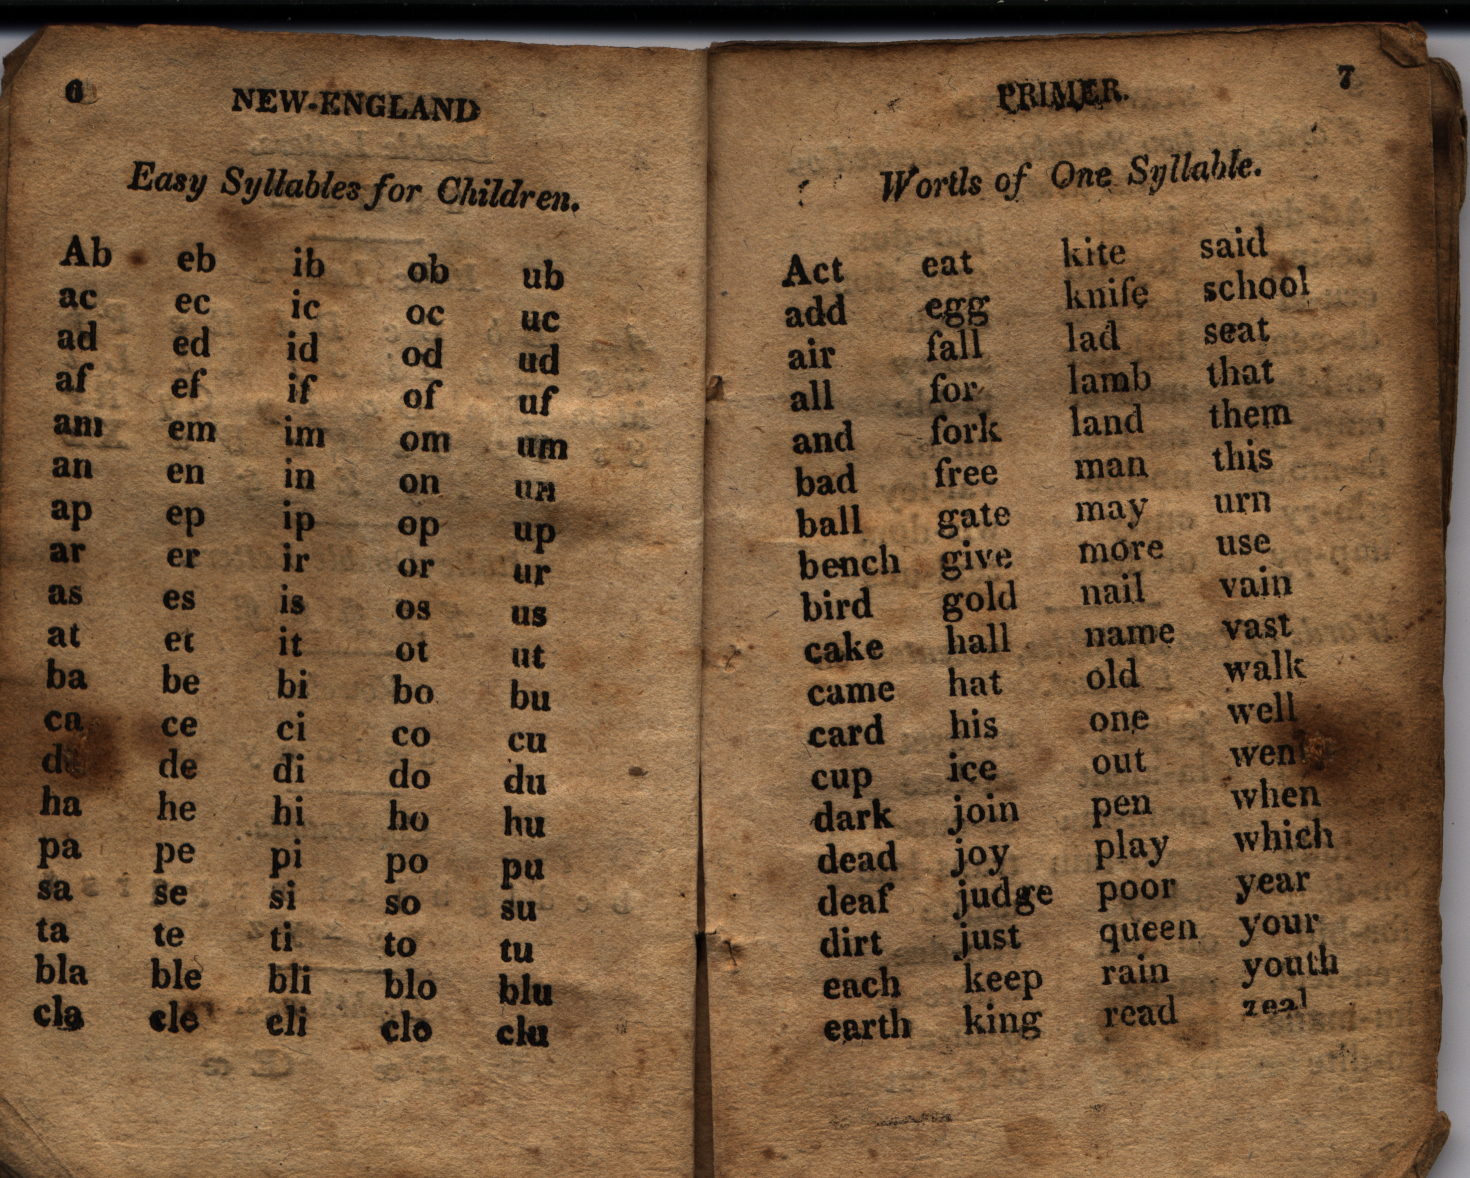 6
NEW-ENGLAND
Easy Syllables for Children.
Ab eb ib ob ub
ac ec ic oc uc
ad ed id od ud
af ef if of uf
am em im om um
an en in on un
ap ep ip op up
ar er ir or ur
as es is os us
at et it ot ut
ba be bi bo bu
ca ce ci co cu
da de di do du
ha he hi ho hu
pa pe pi po pu
sa se si so su
ta te ti to tu
bla ble bli blo blu
cla cle cli clo clu
PRIMER. 7
Words of One Syllable.
Act eat kite said
add egg knife school
air fall lad seat
all for lamb that
and fork land them
bad free man this
ball gate may urn
bench give more use
bird gold nail vain
cake hall name vast
came hat old walk
card his one well
cup ice out went
dark join pen when
dead joy play which
deaf judge poor year
dirt just queen your
each keep rain youth
earth king read zeal